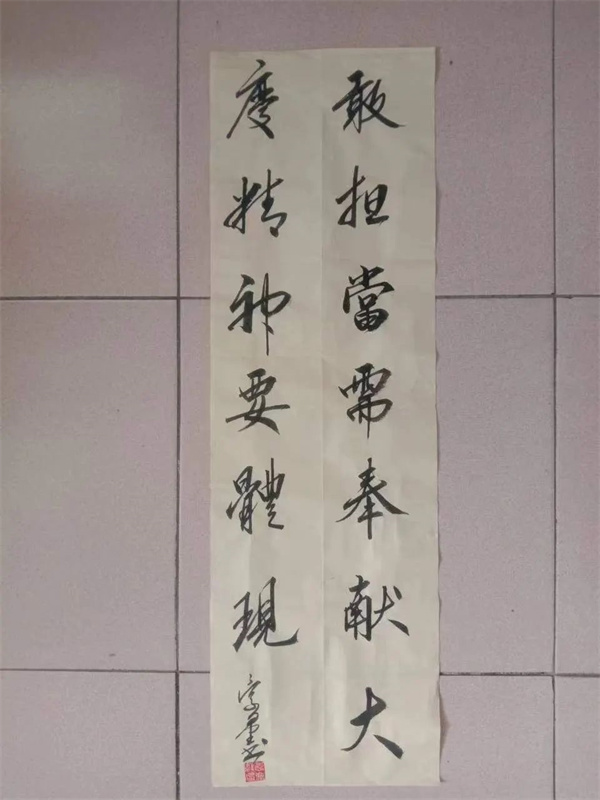 敢担當需奉献大
度精神要體現